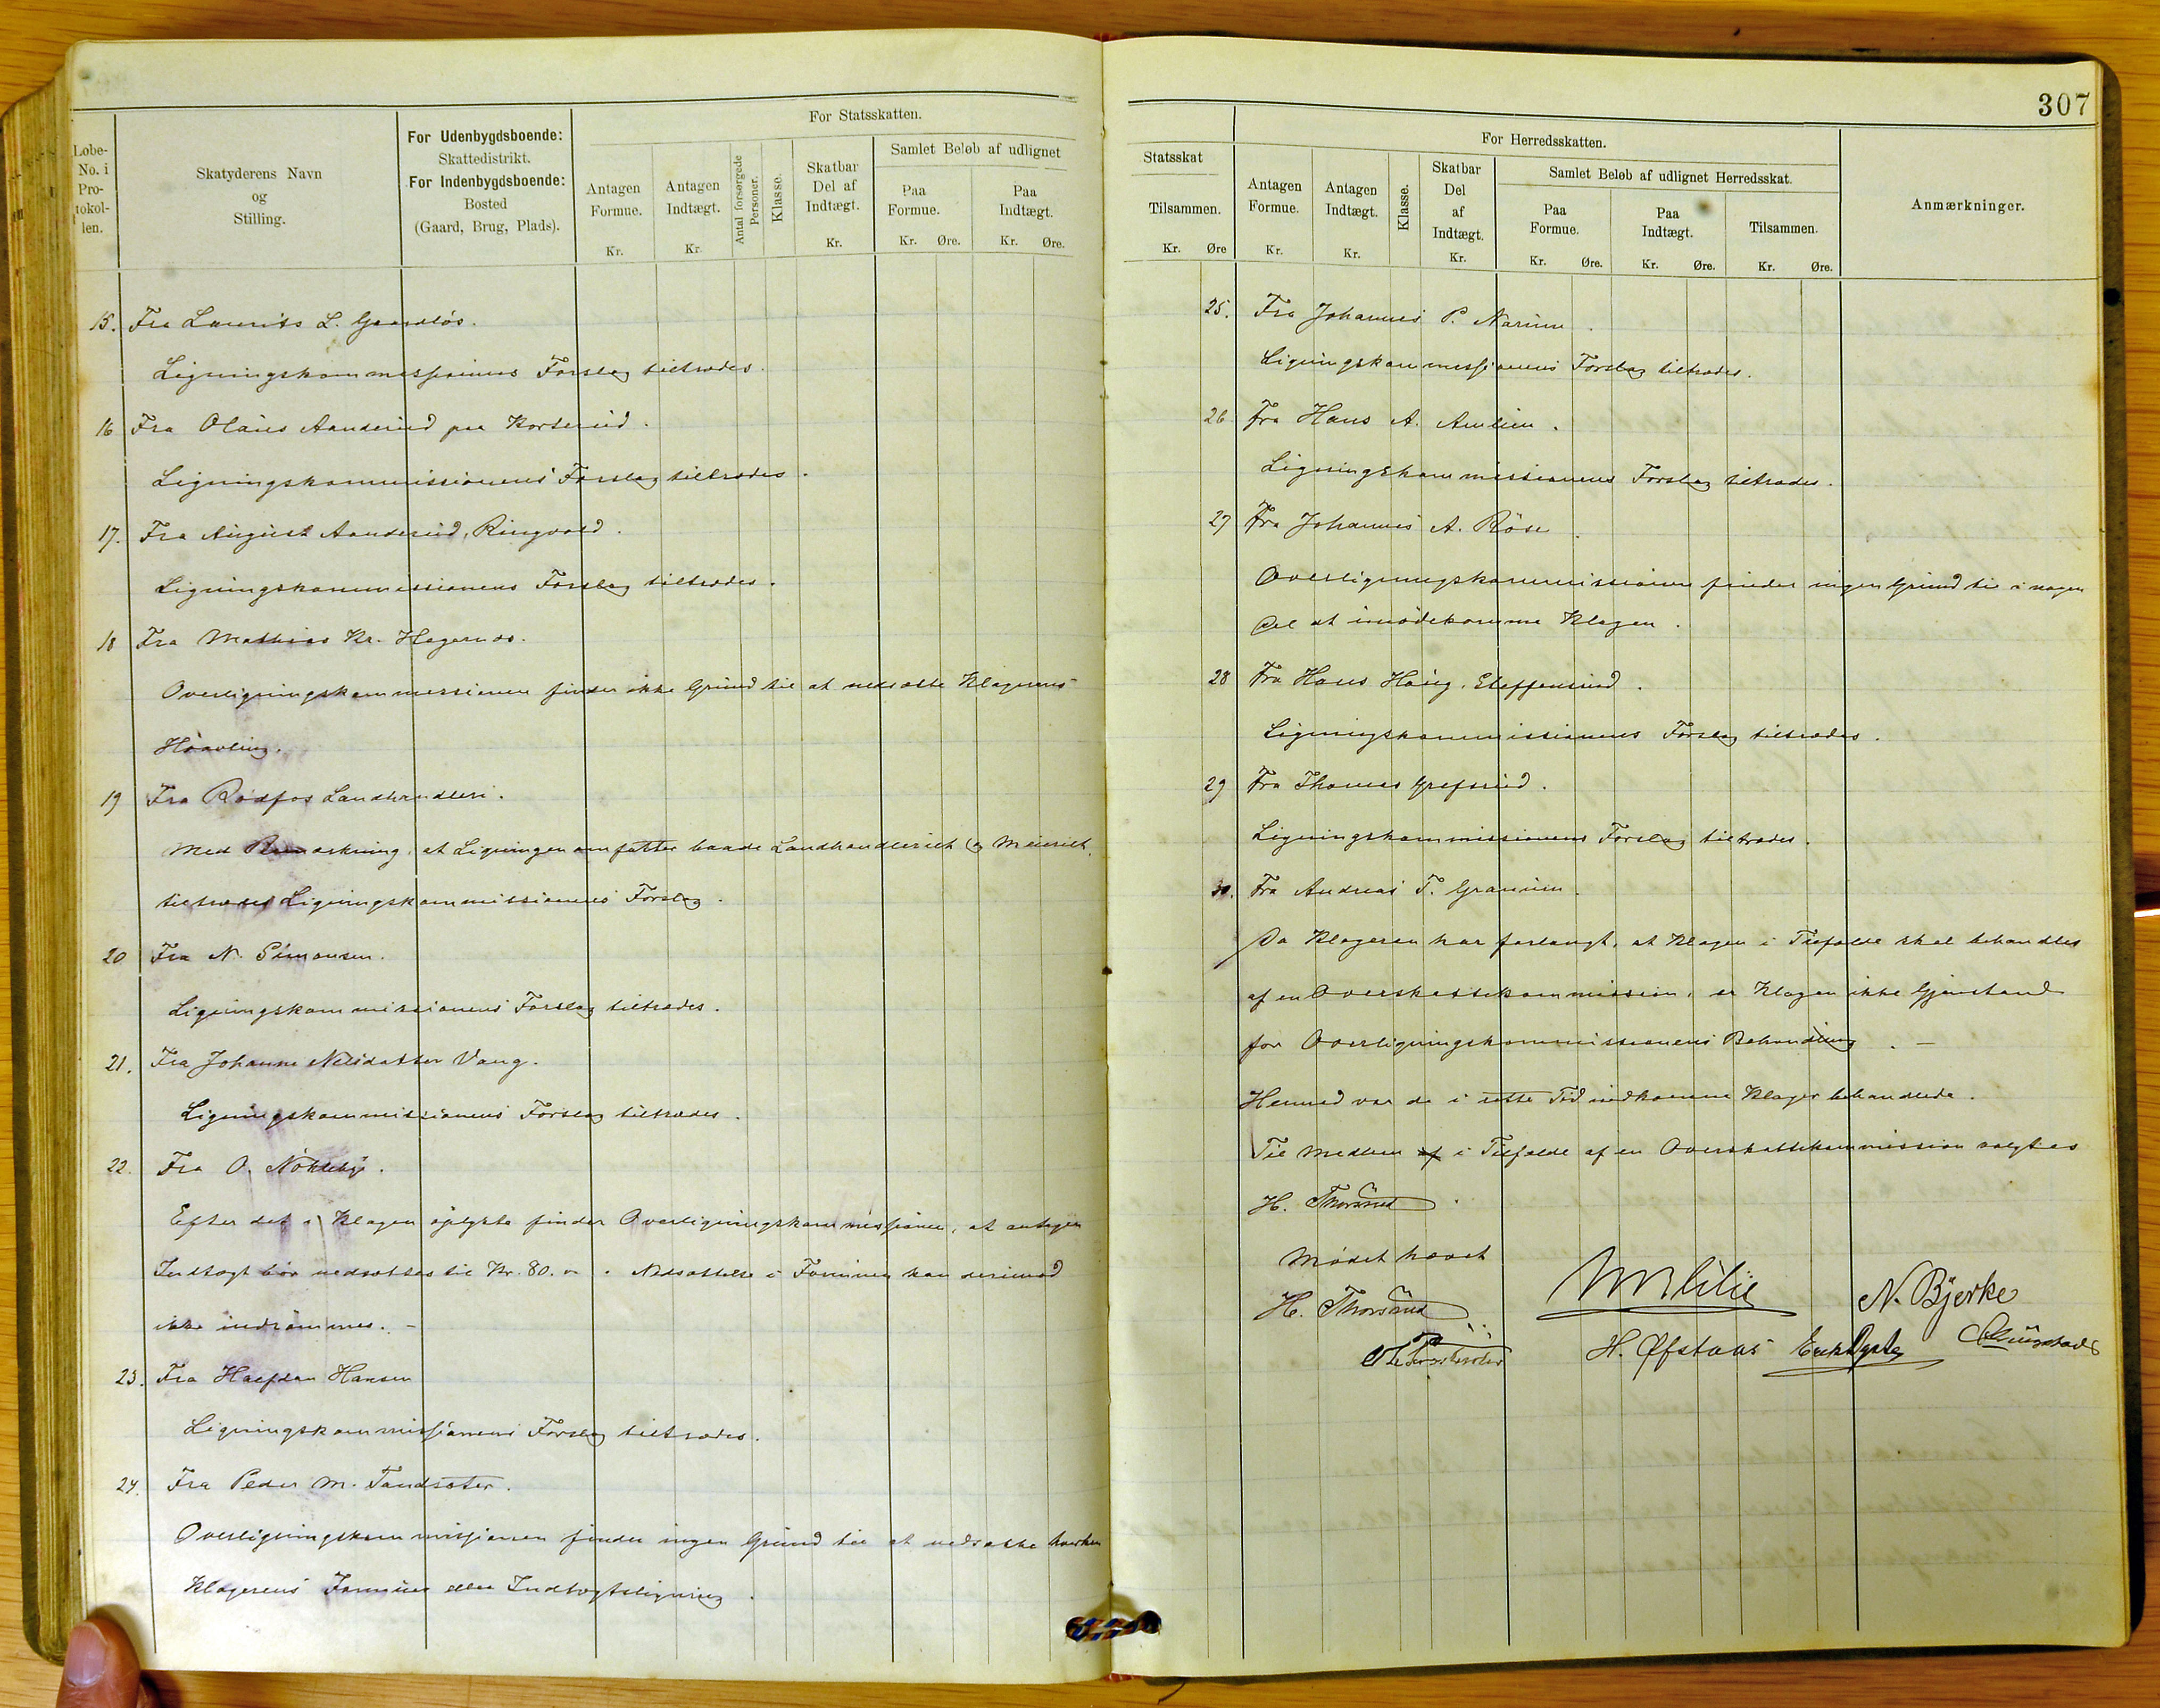 Løbe-No. i Protokollen.
Skatyderens Navn og Stilling.
For Udenbygdsboende: Skattedistrikt. For Indenbygdsboende: Bosted (Gaard, Brug, Plads).
For Statsskatten.
Antagen Formue. Kr.
Antagen Indtægt. Kr.
Antal forsørgede Personer.
Klasse.
Skatbar Del af Indtægt. Kr.
Samlet Beløb af udlignet
Paa Formue. Kr. Øre.
Paa Indtægt. Kr. Øre.
15. Fra Laurits L. Gaardløs.
Ligningskommissionens Forslag tiltrædes.
16 Fra Olaus Aanderud paa Korterud.
Ligningskommissionens Forslag tiltrædes.
17. Fra August Aanderud, Ringvold.
Ligningskommissionens Forslag tiltrædes.
18 Fra Mathias Kr. Hagernæs.
Overligningskommissionen finder ikke Grund til at nedsætte Klagerens
19 Fra Rødfos Landhandleri.
Med Bemærkning, at Ligningen omfatter baade Landhandleriet og Meieriet,
tiltrædes Ligningskommissionens Forslag.
20 Fra N. Simonsen.
Ligningskommissionens Forslag tiltrædes.
21. Fra Johanne Nilsdatter Vang.
Ligningskommissionens Forslag tiltrædes.
22. Fra O. Nøkleby.
Efter det i Klagen oplyste finder Overligningskommissionen, at antagen
Indtægt bør nedsættes til Kr. 80. Nedsættelse i Formuen kan derimod
ikke indrømmes. –
23. Fra Halfdan Hansen
Ligningskommissionens Forslag tiltrædes.
24. Fra Peder M. Tandsæter.
Overligningskommissionen finder ingen Grund til at nedsætte hverken
Klagerens Formues eller Indtægtsligning.
307
Statsskat
Tilsammen. Kr. Øre
For Herredsskatten.
Antagen Formue. Kr.
Antagen Indtægt. Kr.
Klasse.
Skatbar Del af Indtægt. Kr.
Samlet Beløb af udlignet Herredsskat.
Paa Formue. Kr. Øre.
Paa Indtægt. Kr. Øre.
Tilsammen. Kr. Øre.
Anmærkninger.
25. Fra Johannes P. Narum.
Ligningskommissionens Forslag tiltrædes.
26 Fra Hans A. Amlien.
Ligningskommissionens Forslag tiltrædes.
27 Fra Johannes A. Röse.
Overligningskommissionen finder ingen Grund til i nogen
Del at imødekomme Klagen.
28 Fra Hans Haug, Steffensrud.
Ligningskommissionens Forslag tiltrædes.
29 Fra Thomas Grefsrud.
Ligningskommissionens Forslag tiltrædes.
30. Fra Andreas T. Granum.
Da Klageren har forlangt, at Klagen i Tilfælde skal behandles
af en Overskattekommission, er Klagen ikke Gjenstand
for Overligningskommissionens Behandling. –
Hermed var de i rette Tid indkomne Klager behandlede.
Til Medlem af i Tilfælde af en Overskattekommission valgtes
H. Thorsrud.
Mødet hævet
H. Thorsrud
N. Bjerke
H. Øfstaas Erik Dyste